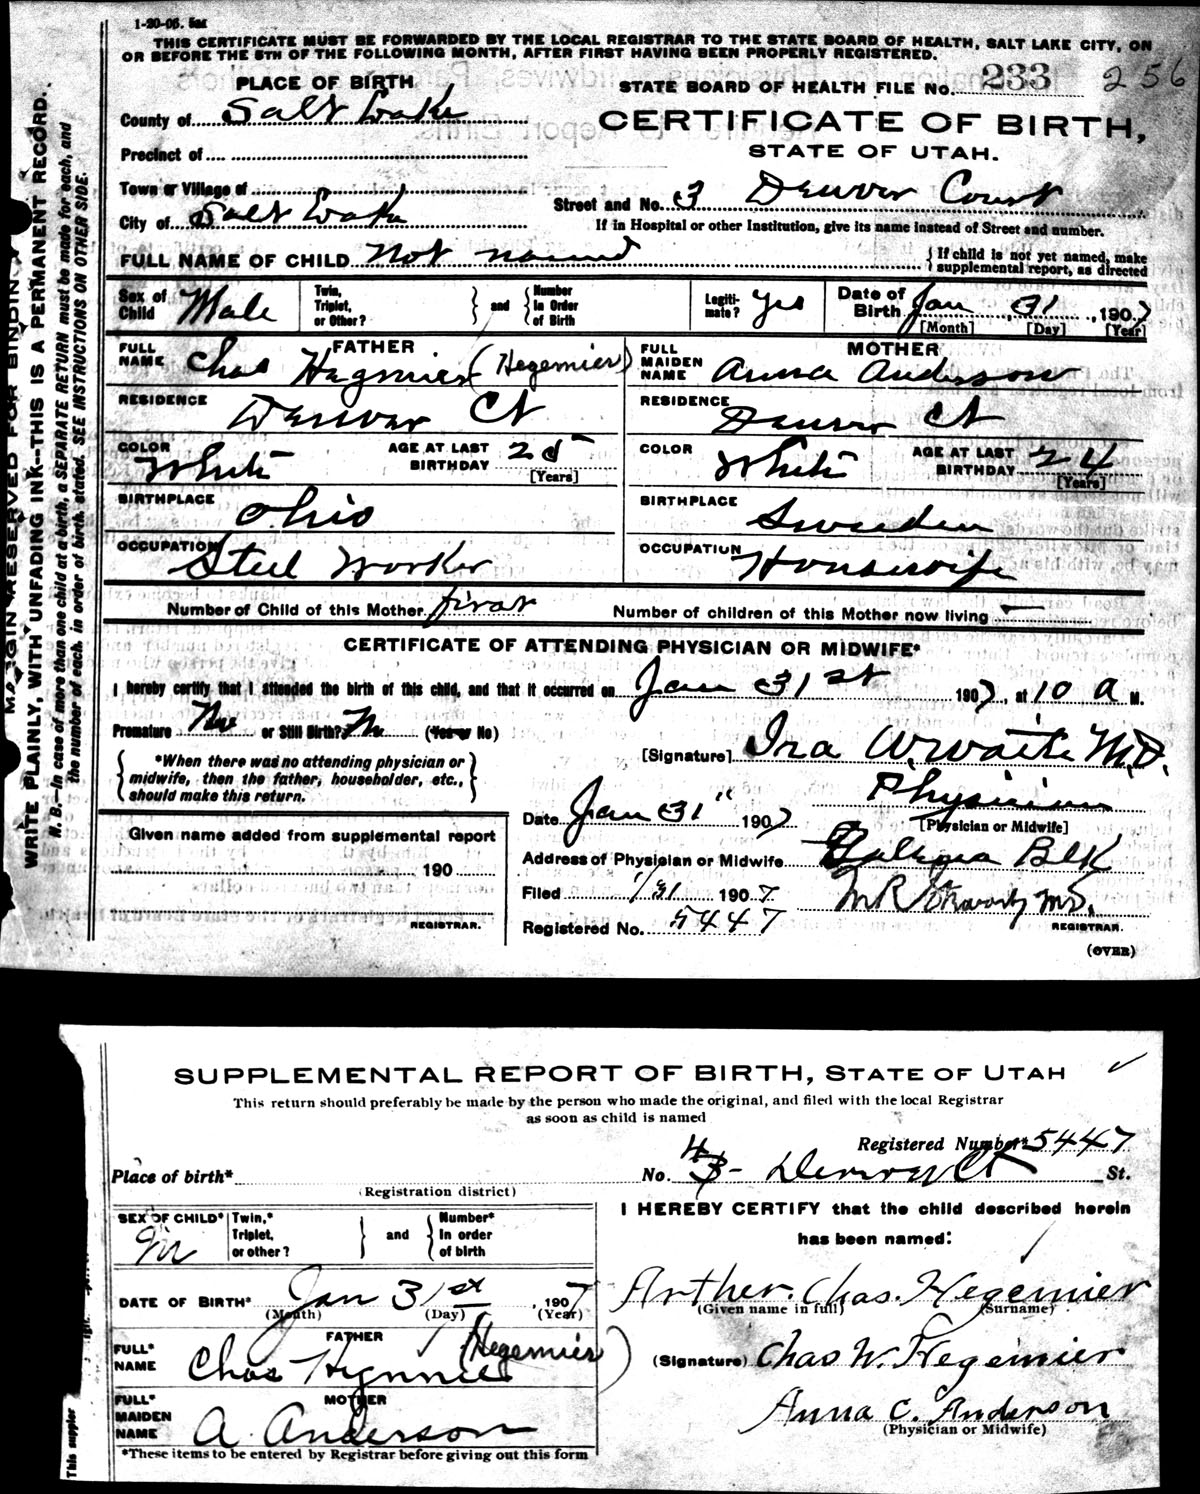 1-20-06. 5m
THIS CERTIFICATE MUST BE FORWARDED BY THE LOCAL REGISTRAR TO THE STATE BOARD OF HEALTH, SALT LAKE CITY, ON
OR BEFORE THE 5TH OF THE FOLLOWING MONTH, AFTER FIRST HAVING BEEN PROPERLY REGISTERED.
PLACE OF BIRTH
STATE BOARD OF HEALTH FILE No. 233 256
County of Salt Lake
CERTIFICATE OF BIRTH,
STATE OF UTAH.
Precinct of
Town or Village of
Street and No. 3 Denver Court
City of Salt Lake
If in Hospital or other Institution, give its name instead of Street and number.
FULL NAME OF CHILD Not named
If child is not yet named, make
supplemental report, as directed
Sex of Child Male
Twin, Triplet, or Other? and Number in Order of Birth
Legiti-mate? Yes
Date of Birth Jan 31, 1907
[Month] [Day] [Year]
FATHER
FULL NAME Chas Hagmier (Hegemier)
MOTHER
FULL MAIDEN NAME Anna Anderson
RESIDENCE Denver Ct
RESIDENCE Denver Ct
COLOR White AGE AT LAST BIRTHDAY 25 [Years]
COLOR White AGE AT LAST BIRTHDAY 24 [Years]
BIRTHPLACE Ohio
BIRTHPLACE Sweeden
OCCUPATION Steel Worker
OCCUPATION Housewife
Number of Child of this Mother first Number of children of this Mother now living —
CERTIFICATE OF ATTENDING PHYSICIAN OR MIDWIFE*
I hereby certify that I attended the birth of this child, and that it occurred on Jan 31st 1907, at 10 a M.
Premature No or Still Birth? No (Yes or No)
[Signature] Ira A. Waite M.D.
*When there was no attending physician or
midwife, then the father, householder, etc.,
should make this return.
Physician
[Physician or Midwife]
Date Jan 31" 1907
Given name added from supplemental report
190
REGISTRAR.
Address of Physician or Midwife BLK
Filed 1/31 1907
M.D.
REGISTRAR.
Registered No. 5447
(OVER)
MARGIN RESERVED FOR BINDING
WRITE PLAINLY, WITH UNFADING INK—THIS IS A PERMANENT RECORD.
N. B.—In case of more than one child at a birth, a SEPARATE RETURN must be made for each, and
the number of each, in order of birth, stated. SEE INSTRUCTIONS ON OTHER SIDE.
SUPPLEMENTAL REPORT OF BIRTH, STATE OF UTAH
This return should preferably be made by the person who made the original, and filed with the local Registrar
as soon as child is named
Registered Number* 5447
Place of birth*
(Registration district)
No. 43- Denver Ct St.
SEX OF CHILD* M
Twin,* Triplet, or other? and Number* In order of birth
I HEREBY CERTIFY that the child described herein
has been named:
DATE OF BIRTH* Jan 31st, 1907
(Month) (Day) (Year)
Arther. Chas. Hegemier
(Given name in full) (Surname)
FATHER
FULL* NAME Chas Hegmier (Hegemier)
(Signature) Chas W. Hegemier
MOTHER
FULL* MAIDEN NAME A Anderson
Anna C. Anderson
(Physician or Midwife)
*These items to be entered by Registrar before giving out this form
This supple